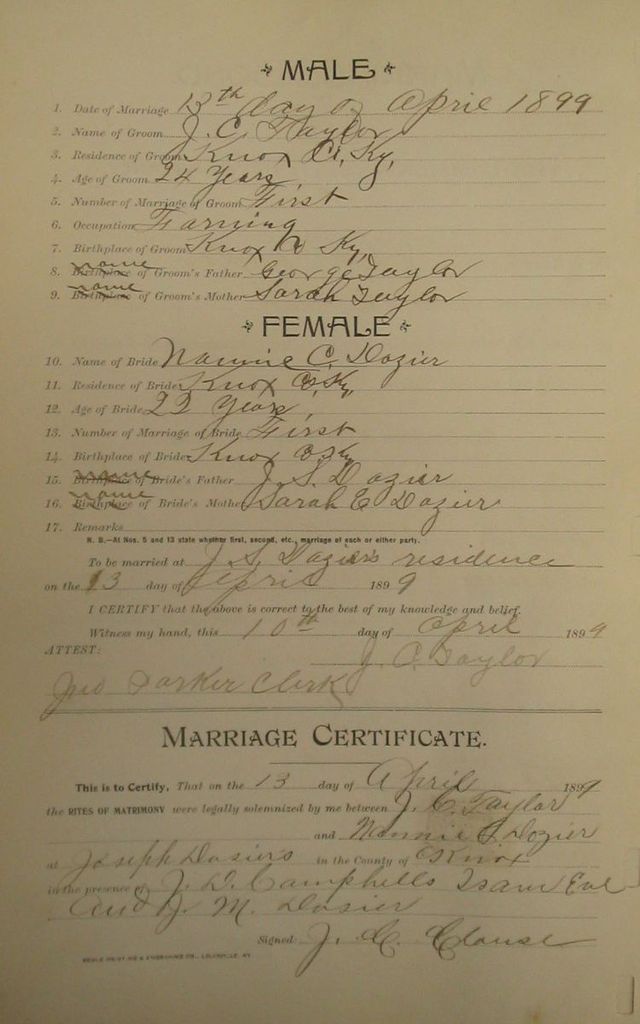 MALE
1. Date of Marriage 13th day of April 1899
2. Name of Groom J. C. Taylor
3. Residence of Groom Knox Co, Ky,
4. Age of Groom 24 Years
5. Number of Marriage of Groom First
6. Occupation Farming
7. Birthplace of Groom Knox Co Ky,
8. Birthplace name of Groom's Father George Taylor
9. Birthplace name of Groom's Mother Sarah Taylor
FEMALE
10. Name of Bride Nannie C. Dozier
11. Residence of Bride Knox Co, Ky,
12. Age of Bride 22 Years,
13. Number of Marriage of Bride First
14. Birthplace of Bride Knox Co Ky
15. Birthplace name of Bride's Father J. S. Dozier
16. Birthplace name of Bride's Mother Sarah E Dozier
17. Remarks
N. B.—At Nos. 5 and 13 state whether first, second, etc., marriage of each or either party.
To be married at J. S. Dozier's residence
on the 13 day of April 1899
I CERTIFY that the above is correct to the best of my knowledge and belief.
Witness my hand, this 10th day of April 1899
ATTEST: J. C. Taylor
Jno Parker Clerk
MARRIAGE CERTIFICATE.
This is to Certify, That on the 13 day of April 1899
the RITES OF MATRIMONY were legally solemnized by me between J. C. Taylor
and Nannie Dozier
at Joseph Dosiers in the County of Knox
in the presence of J. D. Campbells Isam
and J. M. Dosier
Signed: J. C. Clouse